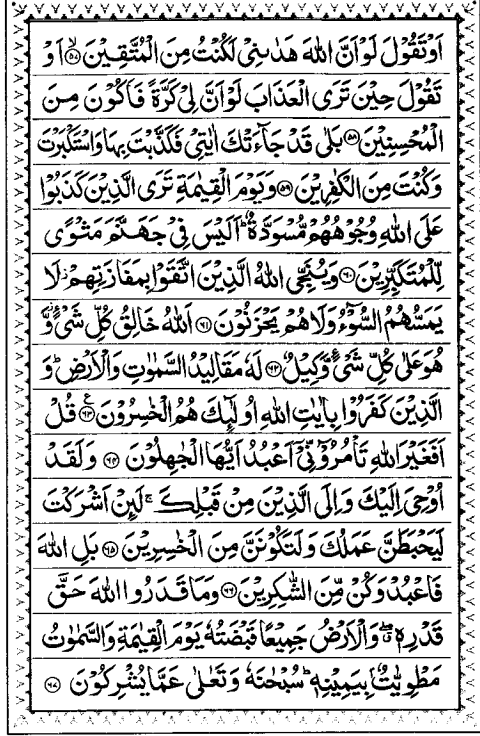 اَوۡتَقُوۡلَ لَوۡاَنَّ اللّٰهَ هَدٰىنِىۡ لَكُنۡتُ مِنَ الۡمُتَّقِيۡنَ ۙ‏﴿۵۷﴾ اَوۡ
تَقُوۡلَ حِيۡنَ تَرَى الۡعَذَابَ لَوۡاَنَّ لِىۡ كَرَّةً فَاَكُوۡنَ مِنَ
الۡمُحۡسِنِيۡنَ ﴿۵۸﴾ بَلٰى قَدۡ جَآءَتۡكَ اٰيٰتِىۡ فَكَذَّبۡتَ بِهَا وَاسۡتَكۡبَرۡتَ
وَكُنۡتَ مِنَ الۡكٰفِرِيۡنَ ﴿۵۹﴾ وَيَوۡمَ الۡقِيٰمَةِ تَرَى الَّذِيۡنَ كَذَبُوۡا
عَلَى اللّٰهِ وُجُوۡهُهُمۡ مُّسۡوَدَّةٌ ؕ اَلَيۡسَ فِىۡ جَهَنَّمَ مَثۡوًى
لِّلۡمُتَكَبِّرِيۡنَ ﴿۶۰﴾ وَيُنَجِّى اللّٰهُ الَّذِيۡنَ اتَّقَوۡا بِمَفَازَتِهِمۡ لَا
يَمَسُّهُمُ السُّوۡٓءُ وَلَا هُمۡ يَحۡزَنُوۡنَ ﴿۶۱﴾ اَللّٰهُ خَالِقُ كُلِّ شَىۡءٍ وَّ
هُوَعَلٰى كُلِّ شَىۡءٍ وَّكِيۡلٌ ﴿۶۲﴾ لَهٗ مَقَالِيۡدُ السَّمٰوٰتِ وَالۡاَرۡضِ ؕ وَ
الَّذِيۡنَ كَفَرُوۡا بِاٰيٰتِ اللّٰهِ اُولٰٓٮِٕكَ هُمُ الۡخٰسِرُوۡنَ ﴿۶۳﴾ ع قُلۡ
اَفَغَيۡرَ اللّٰهِ تَاۡمُرُوۡٓنِّىۡٓ اَعۡبُدُ اَيُّهَا الۡجٰهِلُوۡنَ ﴿۶۴﴾ وَلَقَدۡ
اُوۡحِىَ اِلَيۡكَ وَاِلَى الَّذِيۡنَ مِنۡ قَبۡلِكَ ۚ لَٮِٕنۡ اَشۡرَكۡتَ
لَيَحۡبَطَنَّ عَمَلُكَ وَلَتَكُوۡنَنَّ مِنَ الۡخٰسِرِيۡنَ ﴿۶۵﴾ بَلِ اللّٰهَ
فَاعۡبُدۡ وَكُنۡ مِّنَ الشّٰكِرِيۡنَ ﴿۶۶﴾ وَمَا قَدَرُوا اللّٰهَ حَقَّ
قَدۡرِهٖ ۖ وَالۡاَرۡضُ جَمِيۡعًا قَبۡضَتُهٗ يَوۡمَ الۡقِيٰمَةِ وَالسَّمٰوٰتُ
مَطۡوِيّٰتٌۢ بِيَمِيۡنِهٖ ؕ سُبۡحٰنَهٗ وَتَعٰلٰى عَمَّا يُشۡرِكُوۡنَ ﴿۶۷﴾